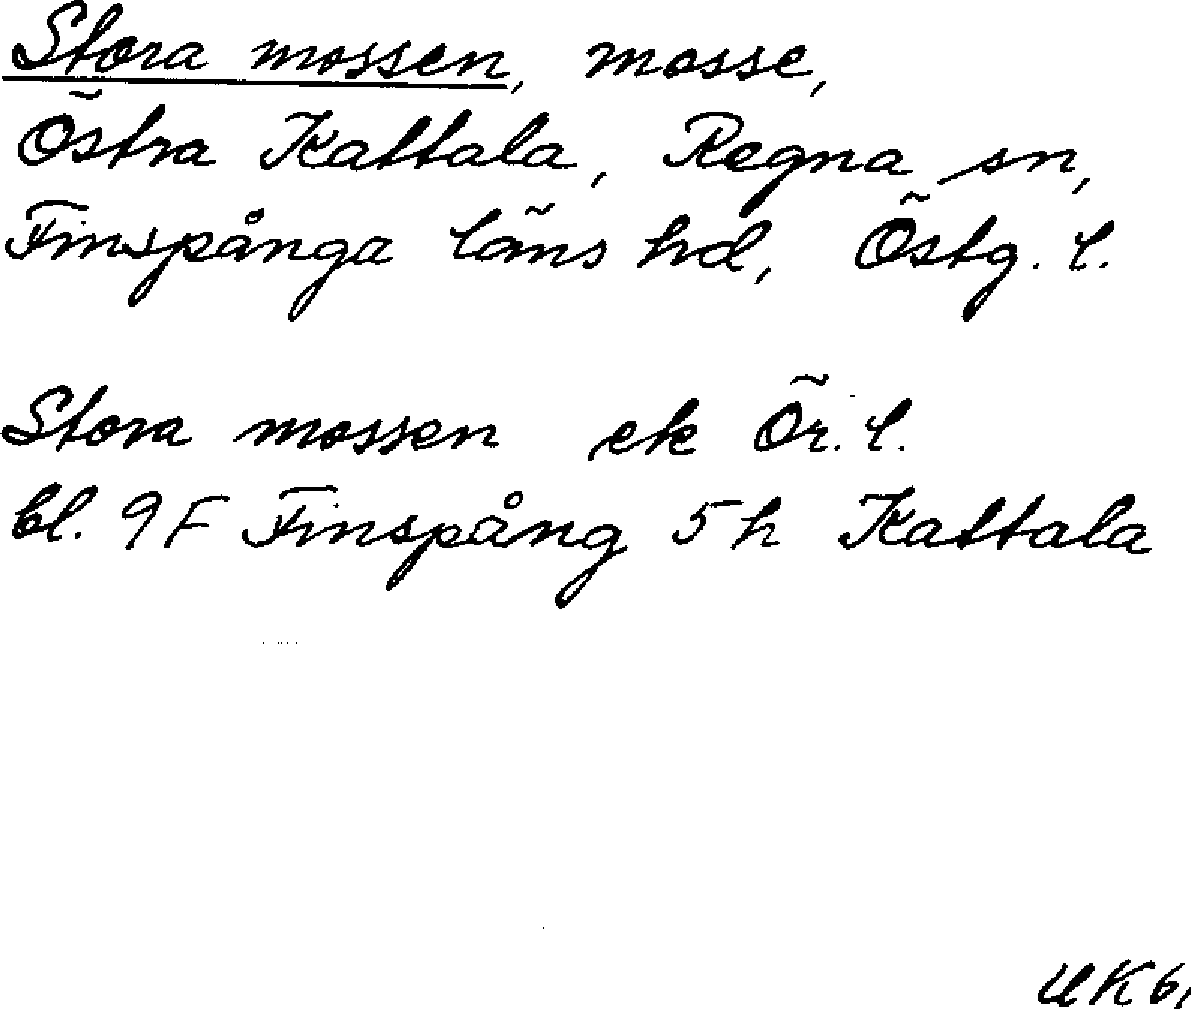 Stora mossen, mosse,
Östra Kattala, Regna sn,
Finspånga läns hd, Östg. l.
Stora mossen ek Ör. l.
bl. 9F Finspång 5h Kattala
UK 61